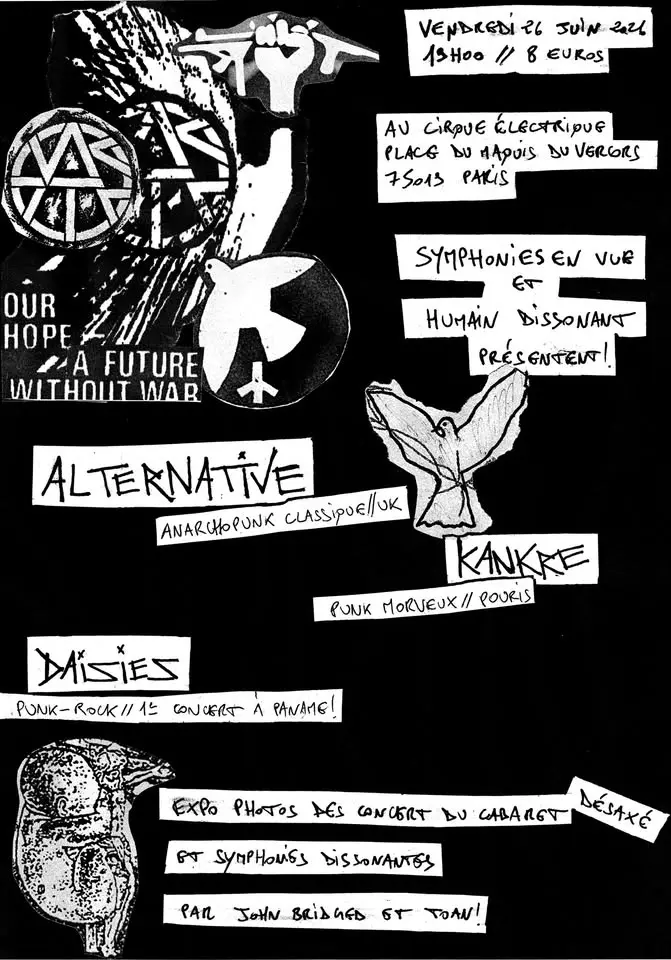 VENDREDI 26 JUIN 2026
19H00 // 8 EUROS
AU CIRQUE ÉLECTRIQUE
PLACE DU MAQUIS DU VERCORS
75013 PARIS
SYMPHONIES EN VUE
ET
HUMAIN DISSONANT
PRÉSENTENT!
OUR
HOPE
A FUTURE
WITHOUT WAR
ALTERNATIVE
ANARCHOPUNK CLASSIQUE//UK
KANKRE
PUNK MORVEUX // POURIS
DAISIES
PUNK-ROCK // 1ER CONCERT À PANAME!
EXPO PHOTOS DES CONCERT DU CABARET DÉSAXÉ
ET SYMPHONIES DISSONANTES
PAR JOHN BRIDGED ET TOAN!